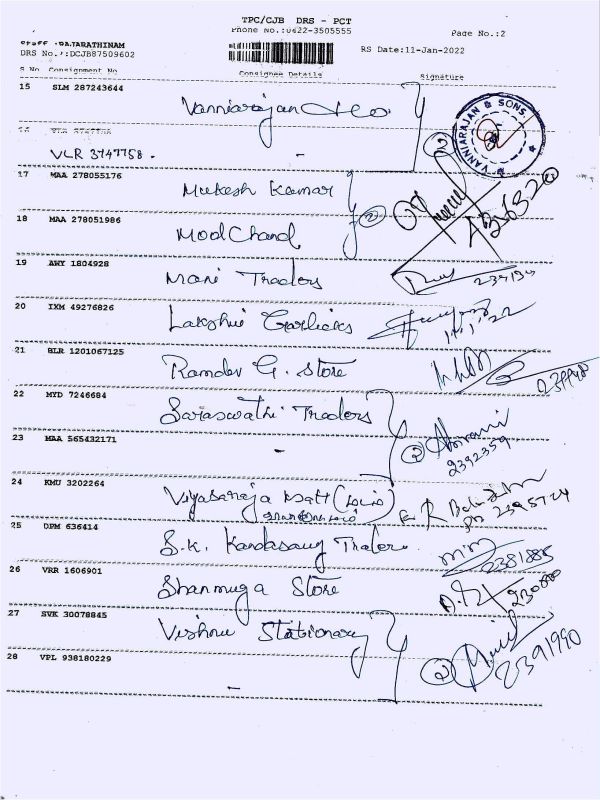 TPC/CJB DRS - PCT
Phone No.:0422-3505555
Page No.:2
Staff :RAJARATHINAM
DRS No.:DCJB87509602
RS Date:11-Jan-2022
S No Consignment No Consignee Details Signature
15 SLM 287243644
Vanniarajan
VANNIARAJAN & SONS
16 VLR 3747758
VLR 3747758 . -
17 MAA 278055176
Mukesh Kumar
18 MAA 278051986
2
MoolChand
19 AMY 1804928
Mani Traders
20 IXM 49276826
Lakshmi
21 BLR 1201067125
Ramdev G. Store
22 MYD 7246684
Saraswathi Traders
23 MAA 565432171
- 2
2392359
24 KMU 3202264
Viyasaraja Matt
25 DPM 636414
S.K. Kandasamy Trader
2381885
26 VRR 1606901
Shanmuga Store
27 SVK 30078845
Vishnu Stationary
28 VPL 938180229
2 2391990
-